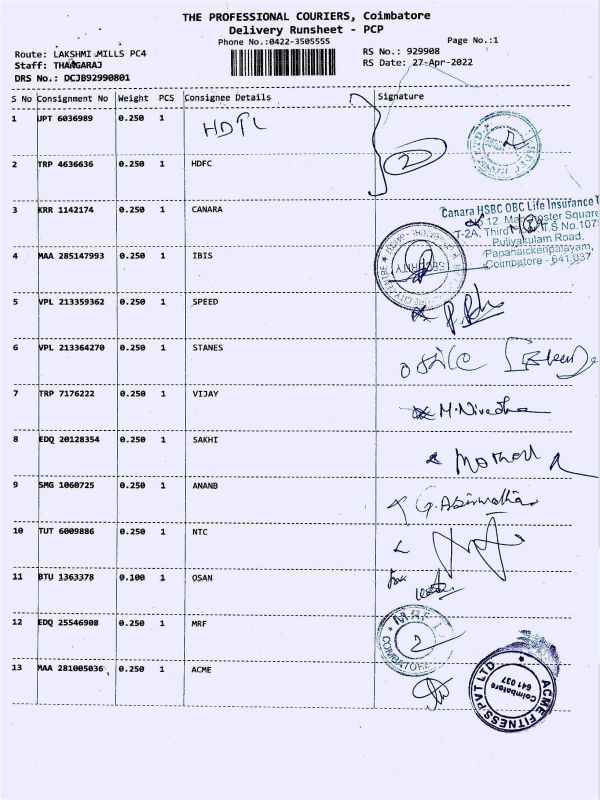 THE PROFESSIONAL COURIERS, Coimbatore
Delivery Runsheet - PCP
Phone No.:0422-3505555 Page No.:1
Route: LAKSHMI MILLS PC4 RS No.: 929908
Staff: THANGARAJ RS Date: 27-Apr-2022
DRS No.: DCJB92990801
S No Consignment No Weight PCS Consignee Details Signature
1 UPT 6036989 0.250 1 HDFC
2 TRP 4636636 0.250 1 HDFC 2
3 KRR 1142174 0.250 1 CANARA
Canara HSBC OBC Life Insurance
12, Manchester Square
T-2A, Third T.S No.107
Puliyakulam Road,
Papanaickenpalayam,
Coimbatore - 641 037
4 MAA 285147993 0.250 1 IBIS
SECURITY
5 VPL 213359362 0.250 1 SPEED
6 VPL 213364270 0.250 1 STANES
7 TRP 7176222 0.250 1 VIJAY M.Nivedha
8 EDQ 20128354 0.250 1 SAKHI
9 SMG 1060725 0.250 1 ANANB
10 TUT 6009886 0.250 1 NTC
11 BTU 1363378 0.100 1 OSAN
12 EDQ 25546908 0.250 1 MRF
MRF
COIMBATORE
13 MAA 281005036 0.250 1 ACME
ACME FITNESS PVT LTD
Coimbatore
641 037